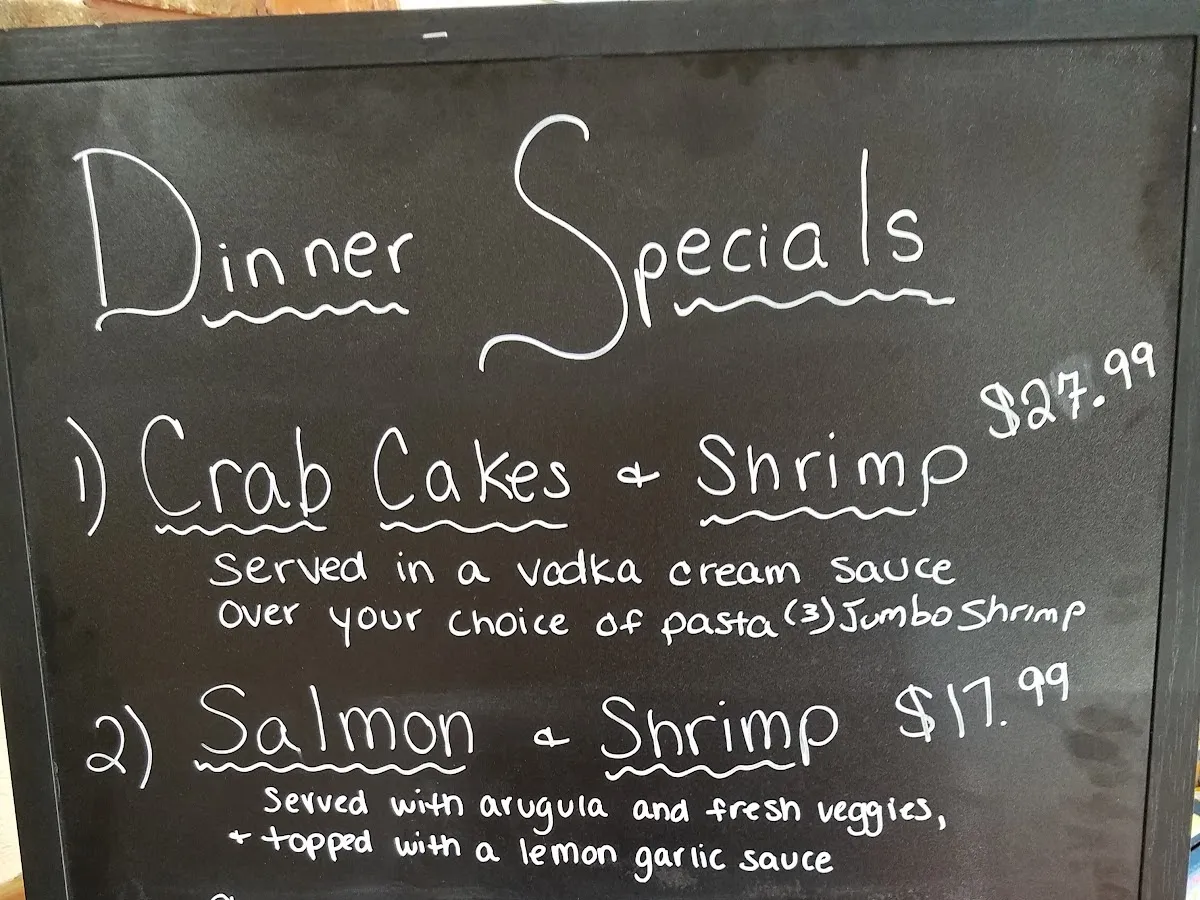 Dinner Specials
1) Crab Cakes & Shrimp $27.99
Served in a vodka cream sauce
over your choice of pasta (3) Jumbo Shrimp
2) Salmon & Shrimp $17.99
Served with arugula and fresh veggies,
+ topped with a lemon garlic sauce